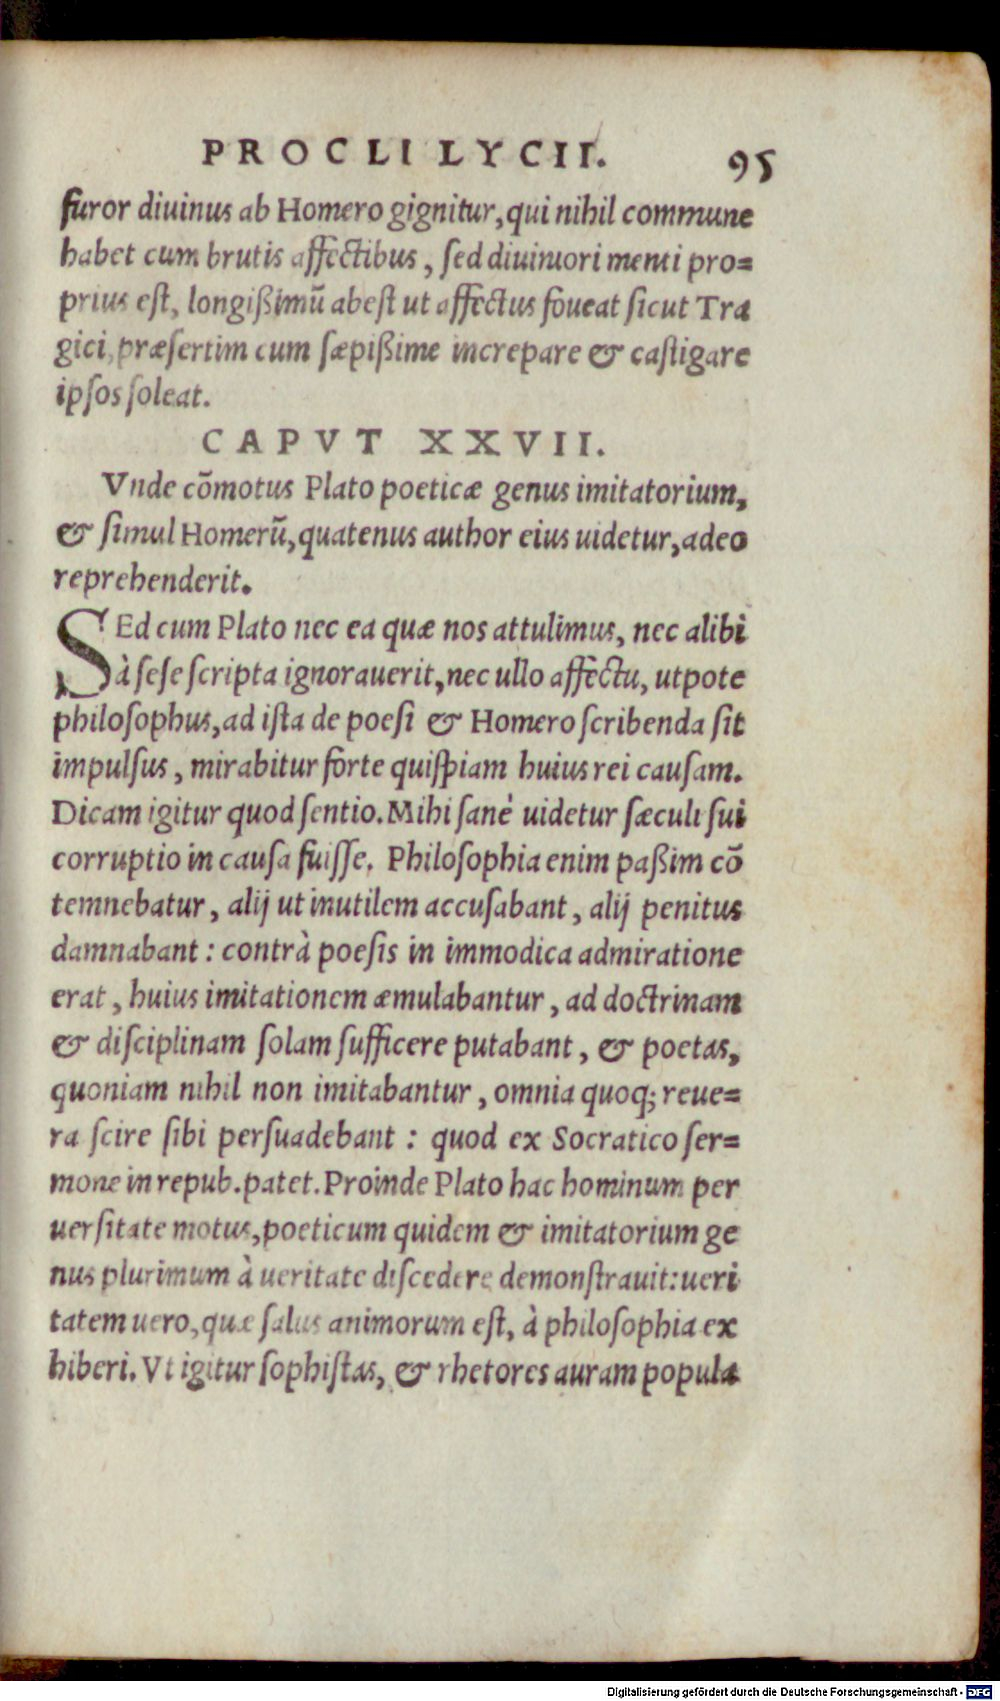 PROCLI LYCII. 95
furor diuinus ab Homero gignitur, qui nihil commune
habet cum brutis affectibus, ſed diuiniori menti pro=
prius eſt, longißimũ abeſt ut affectus foueat ſicut Tra
gici, præſertim cum ſæpißime increpare & caſtigare
ipſos ſoleat.
CAPVT XXVII.
Vnde cõmotus Plato poeticæ genus imitatorium,
& ſimul Homerũ, quatenus author eius uidetur, adeo
reprehenderit.
SEd cum Plato nec ea quæ nos attulimus, nec alibi
à ſeſe ſcripta ignorauerit, nec ullo affectu, utpote
philoſophus, ad iſta de poeſi & Homero ſcribenda ſit
impulſus, mirabitur forte quiſpiam huius rei cauſam.
Dicam igitur quod ſentio. Mihi ſanè uidetur ſæculi ſui
corruptio in cauſa fuiſſe. Philoſophia enim paßim cõ
temnebatur, alij ut inutilem accuſabant, alij penitus
damnabant: contrà poeſis in immodica admiratione
erat, huius imitationem æmulabantur, ad doctrinam
& diſciplinam ſolam ſufficere putabant, & poetas,
quoniam nihil non imitabantur, omnia quoq; reue=
ra ſcire ſibi perſuadebant: quod ex Socratico ſer=
mone in repub. patet. Proinde Plato hac hominum per
uerſitate motus, poeticum quidem & imitatorium ge
nus plurimum à ueritate diſcedere demonſtrauit: ueri
tatem uero, quæ ſalus animorum eſt, à philoſophia ex
hiberi. Vt igitur ſophiſtas, & rhetores auram popula
Digitalisierung gefördert durch die Deutsche Forschungsgemeinschaft - DFG